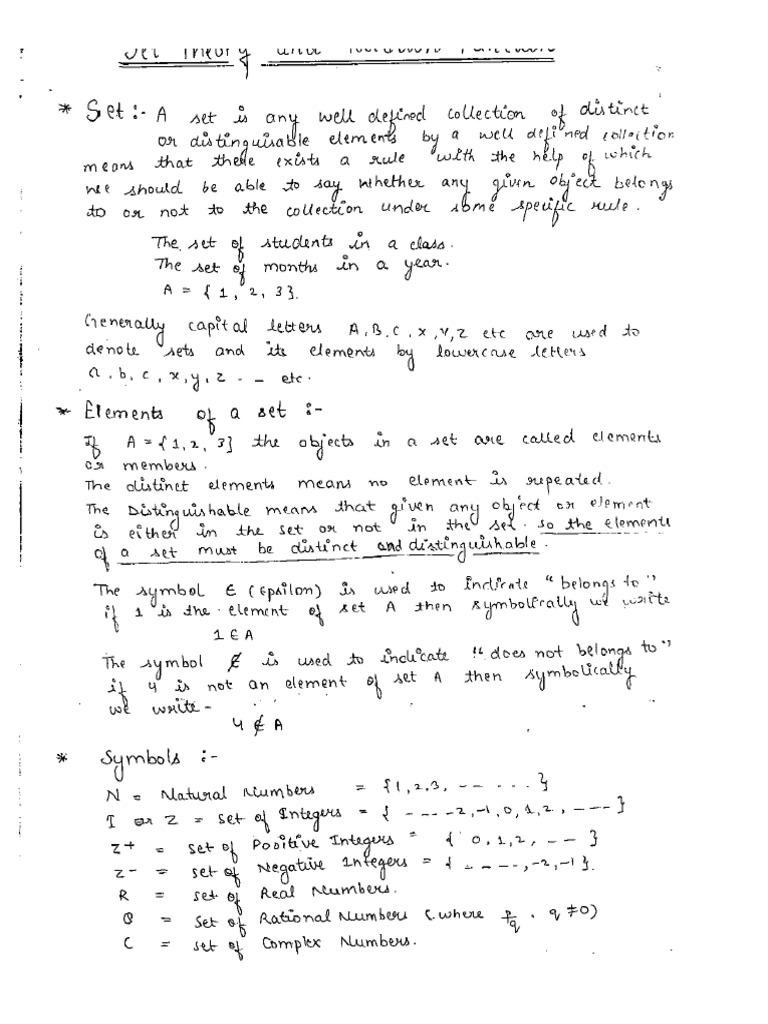 Set Theory and
* Set :- A set is any well defined collection of distinct
or distinguisable elements by a well defined collection
means that there exists a rule with the help of which
we should be able to say whether any given object belongs
to or not to the collection under some specific rule.
The set of students in a class.
The set of months in a year.
A = { 1, 2, 3}.
Generally capital letters A, B, C, X, Y, Z etc are used to
denote sets and its elements by lowercase letters
a, b, c, x, y, z - - etc.
* Elements of a set :-
If A = {1, 2, 3} the objects in a set are called elements
or members.
The distinct elements means no element is repeated.
The Distinguishable means that given any object or element
is either in the set or not in the set. so the elements
of a set must be distinct and distinguishable.
The symbol ∈ (Epsilon) is used to indicate "belongs to"
if 1 is the element of set A then symbolically we write
1 ∈ A
The symbol ∉ is used to indicate "does not belongs to"
if 4 is not an element of set A then symbolically
we write -
4 ∉ A
* Symbols :-
N = Natural Numbers = {1, 2, 3, -- ...}
I or Z = set of Integers = { - - - -2, -1, 0, 1, 2, - - - }
Z+ = set of Positive Integers = { 0, 1, 2, - - }
Z- = set of Negative Integers = { - - - -, -2, -1 }.
R = set of Real Numbers.
Q = Set of Rational Numbers (where p/q , q ≠ 0)
C = set of Complex Numbers.